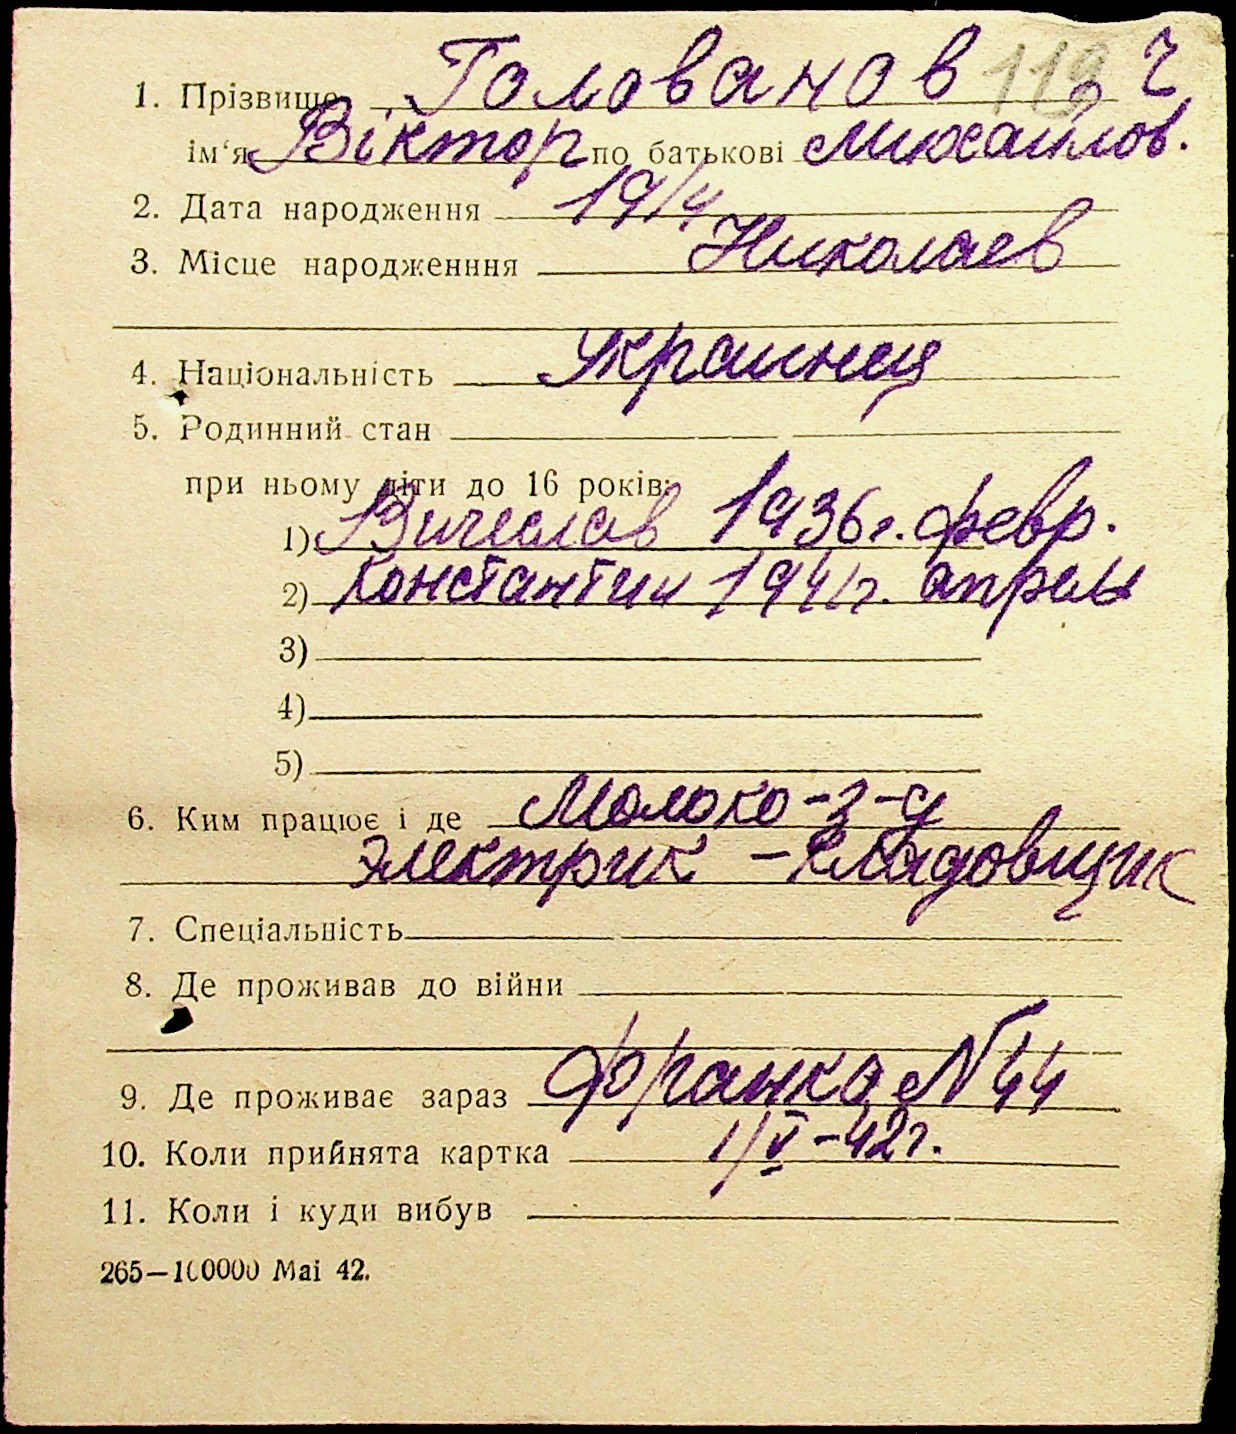 1. Прізвище Голованов 119 Ч
ім‘я Віктор по батькові Михайлов.
2. Дата народження 1914
3. Місце народженння Николаев
4. Національність Украинец
5. Родинний стан
при ньому діти до 16 років:
1) Вичеслав 1936 г. февр.
2) Константин 1941 г. апрель
3)
4)
5)
6. Ким працює і де Молоко-з-д
Электрик – кладовщик
7. Спеціальність
8. Де проживав до війни
9. Де проживає зараз Франка N 44
10. Коли прийнята картка 1/V–42 г.
11. Коли і куди вибув
265—100000 Mai 42.